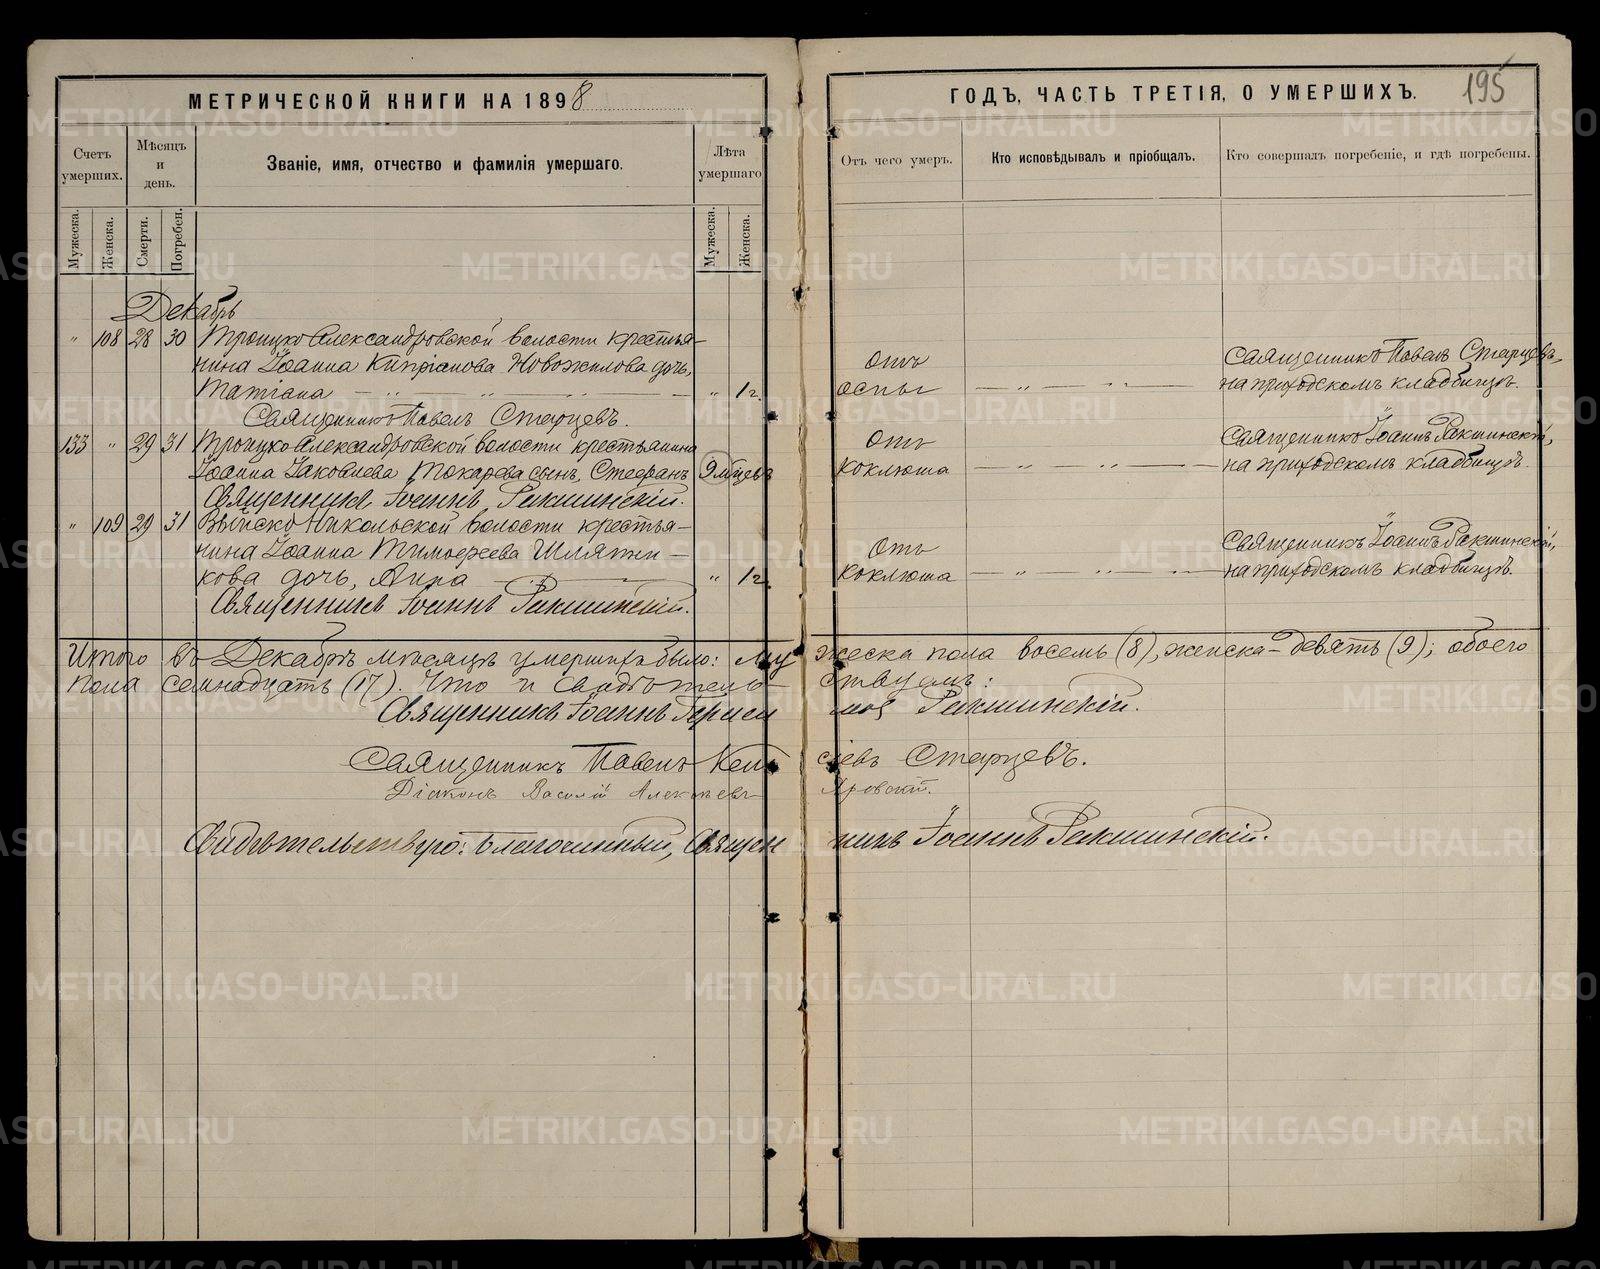 МЕТРИЧЕСКОЙ КНИГИ НА 1898
ГОДЪ, ЧАСТЬ ТРЕТІЯ, О УМЕРШИХЪ.
195
Счетъ умерших.
Мѣсяцъ и день.
Званіе, имя, отчество и фамилія умершаго.
Лѣта умершаго
Отъ чего умеръ.
Кто исповѣдывалъ и пріобщалъ.
Кто совершалъ погребеніе, и гдѣ погребены.
Мужеска.
Женска.
Смерти.
Погребен.
Мужеска.
Женска.
Декабрь
" 108 28 30 Троицко Александровской волости крестья-
нина Іоанна Кипріанова Новожилова дочь,
Татіана — " — " — " — " 1 г.
отъ
оспы — " — " —
Священникъ Павелъ Старцевъ,
на приходскомъ кладбищѣ.
Священникъ Павелъ Старцевъ.
133 " 29 31 Троицко Александровской волости крестьянина
Іоанна Іаковлева Токарева сынъ, Стефанъ 9 мѣцевъ
отъ
коклюша — " — " —
Священникъ Іоаннъ Ракшинскій,
на приходскомъ кладбищѣ.
Священникъ Іоаннъ Ракшинскій.
" 109 29 31 Выйско Никольской волости крестья-
нина Іоанна Тимофеева Шляпни-
кова дочь, Анна — " — " 1 г.
Отъ
коклюша — " — " —
Священникъ Іоаннъ Ракшинскій,
на приходскомъ кладбищѣ.
Священникъ Іоаннъ Ракшинскій.
Итого въ Декабрѣ мѣсяцѣ умершихъ было: мужеска пола восемь (8), женска - девять (9); обоего
пола семнадцать (17). Что и свидѣтельствуемъ:
Священникъ Іоаннъ Ракшинскій.
Священникъ Павелъ Старцевъ.
Діаконъ Василій Яровскій.
Свидѣтельствую: Благочинный, Священникъ Іоаннъ Ракшинскій.
METRIKI.GASO-URAL.RU